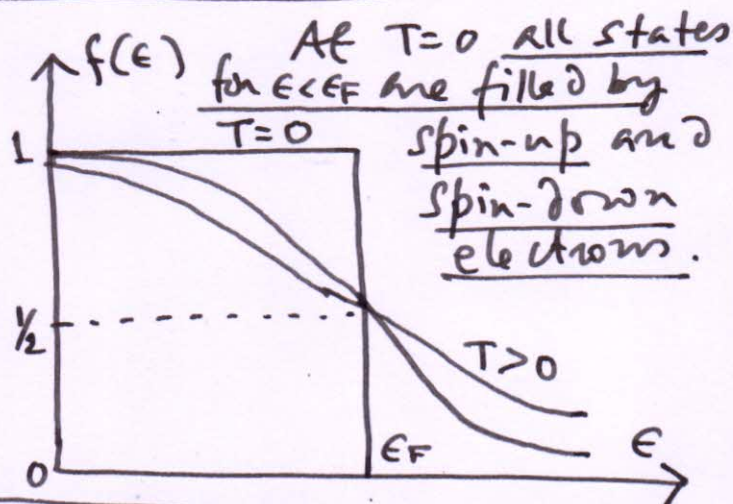 f(ϵ) At T=0 all states
for ϵ<ϵF are filled by
T=0 spin-up and
1 spin-down
electrons.
1/2
T>0
ϵF ϵ
0